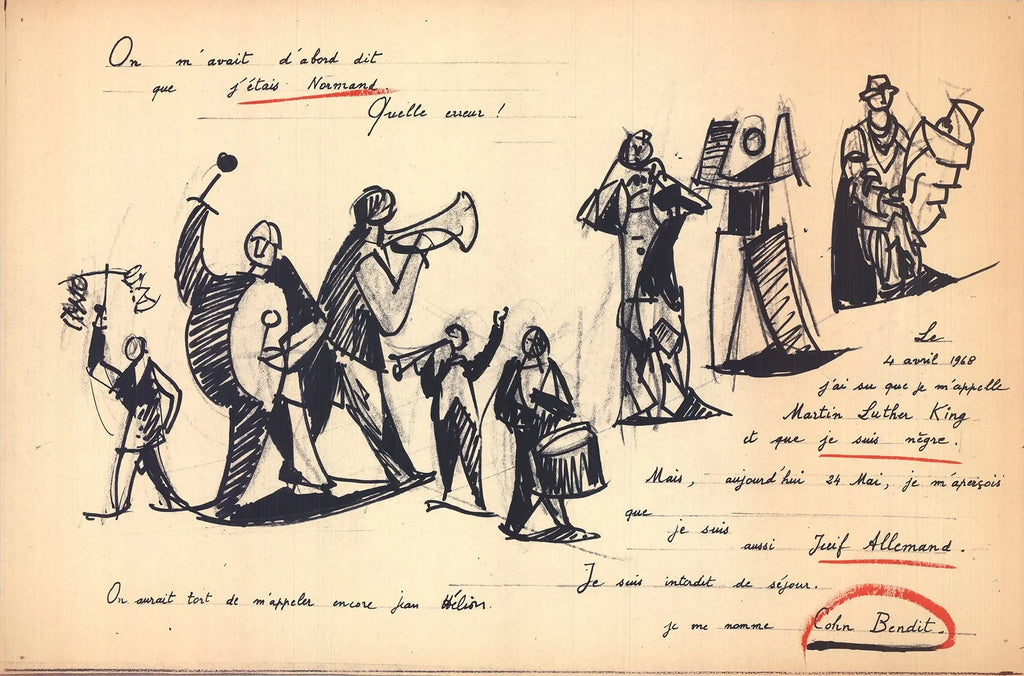 On m'avait d'abord dit
que j'étais Normand
Quelle erreur !
Le
4 avril 1968
j'ai su que je m'appelle
Martin Luther King
et que je suis nègre.
Mais, aujourd'hui 24 Mai, je m'aperçois
que
je suis
aussi Juif Allemand.
Je suis interdit de séjour.
je me nomme Cohn Bendit.
On aurait tort de m'appeler encore jean Hélion.